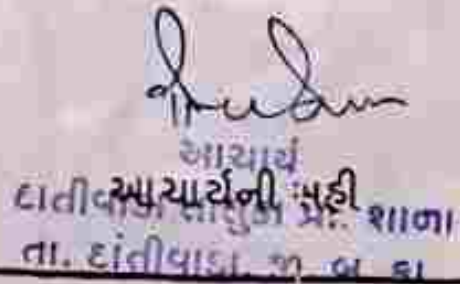 આચાર્ય
આચાર્યની સહી
દાંતીવાડા તાલુકા પ્રા. શાળા
તા. દાંતીવાડા. જી. બ. કાં